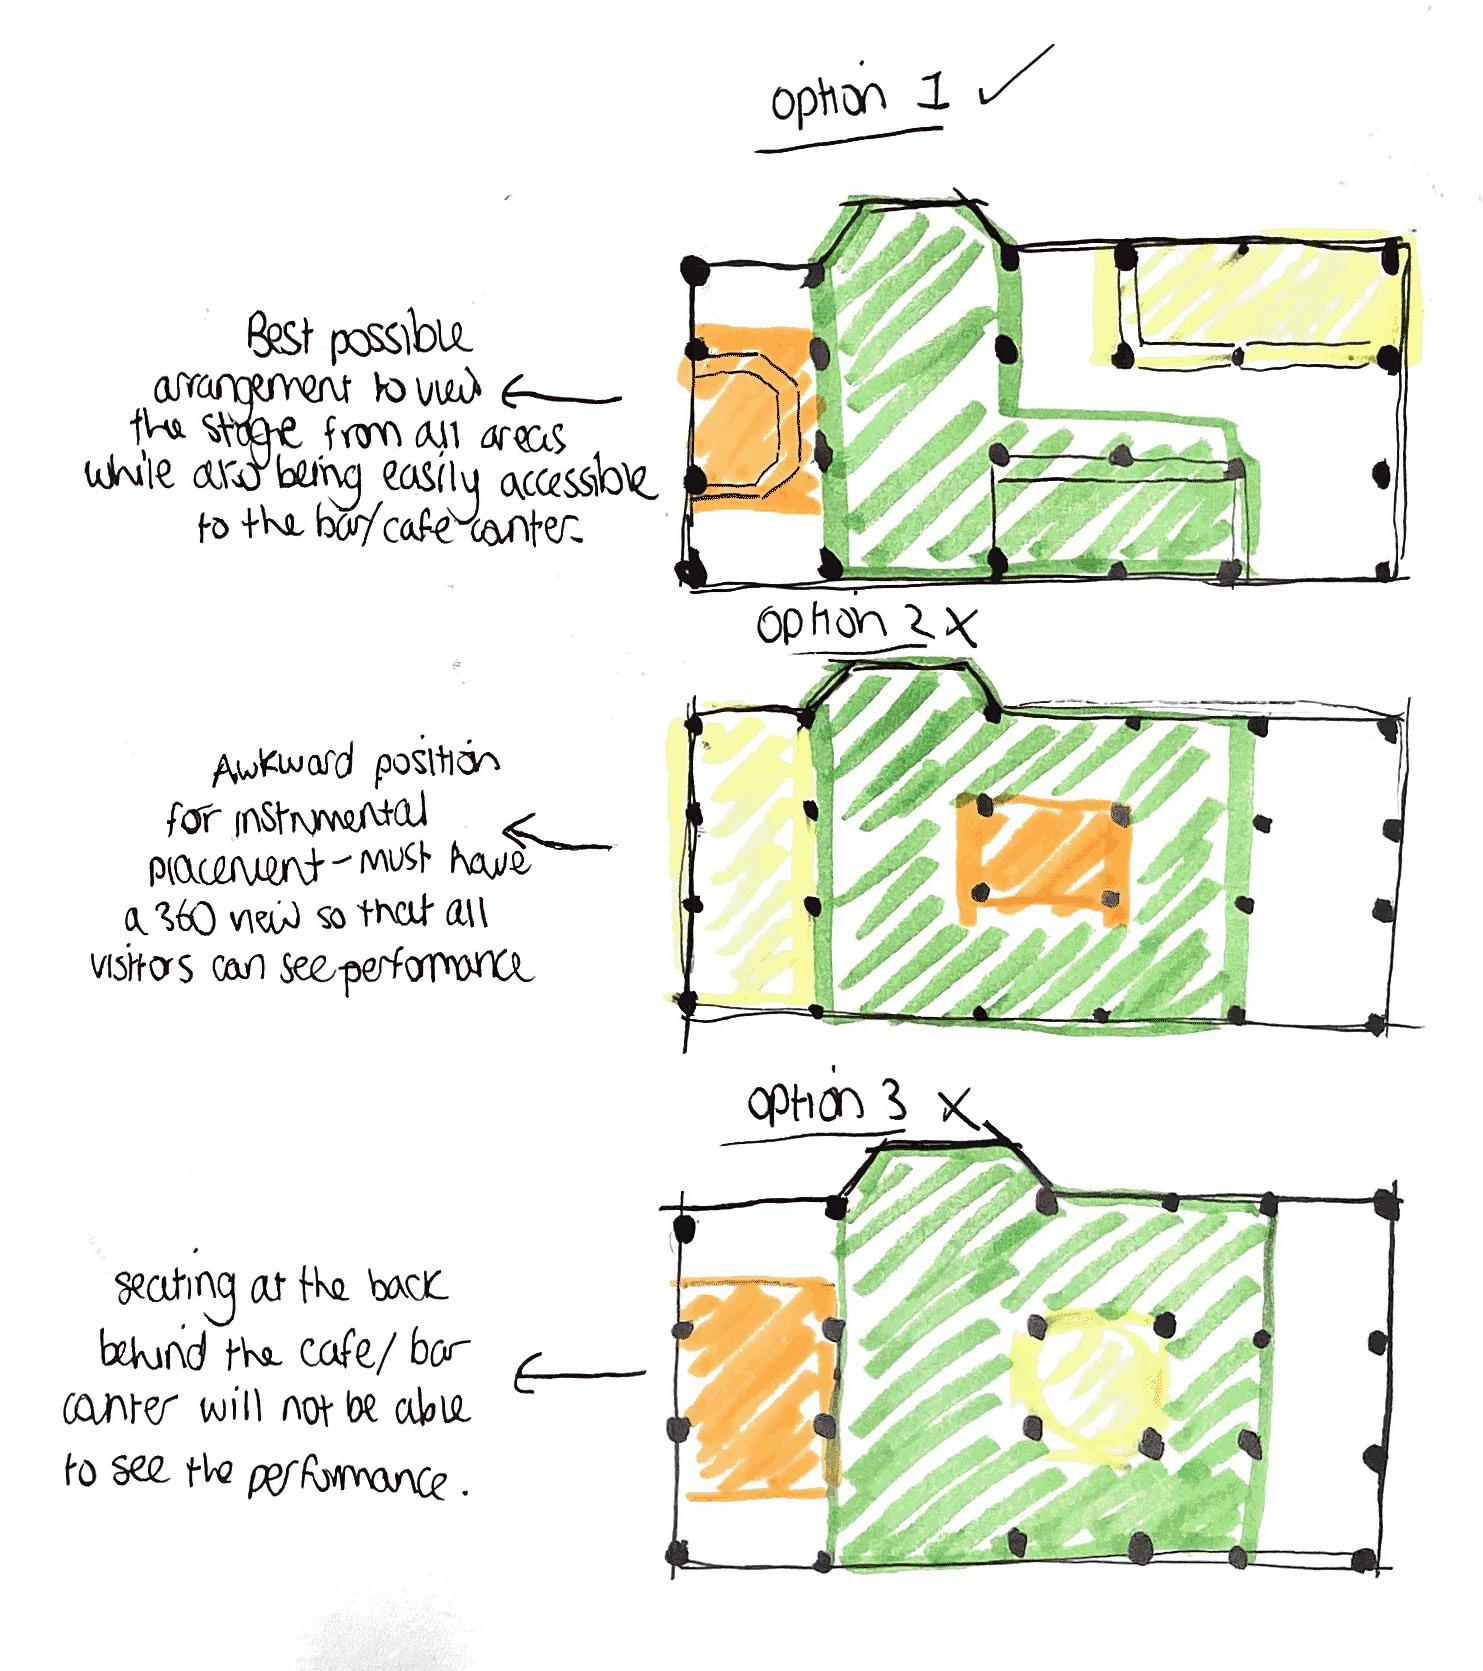 option 1
Best possible
arrangement to view
the stage from all areas
while also being easily accessible
to the bar/cafe canter.
option 2 X
Awkward position
for instrumental
placement - must have
a 360 view so that all
visitors can see performance
option 3 X
seating at the back
behind the cafe/ bar
canter will not be able
to see the performance.